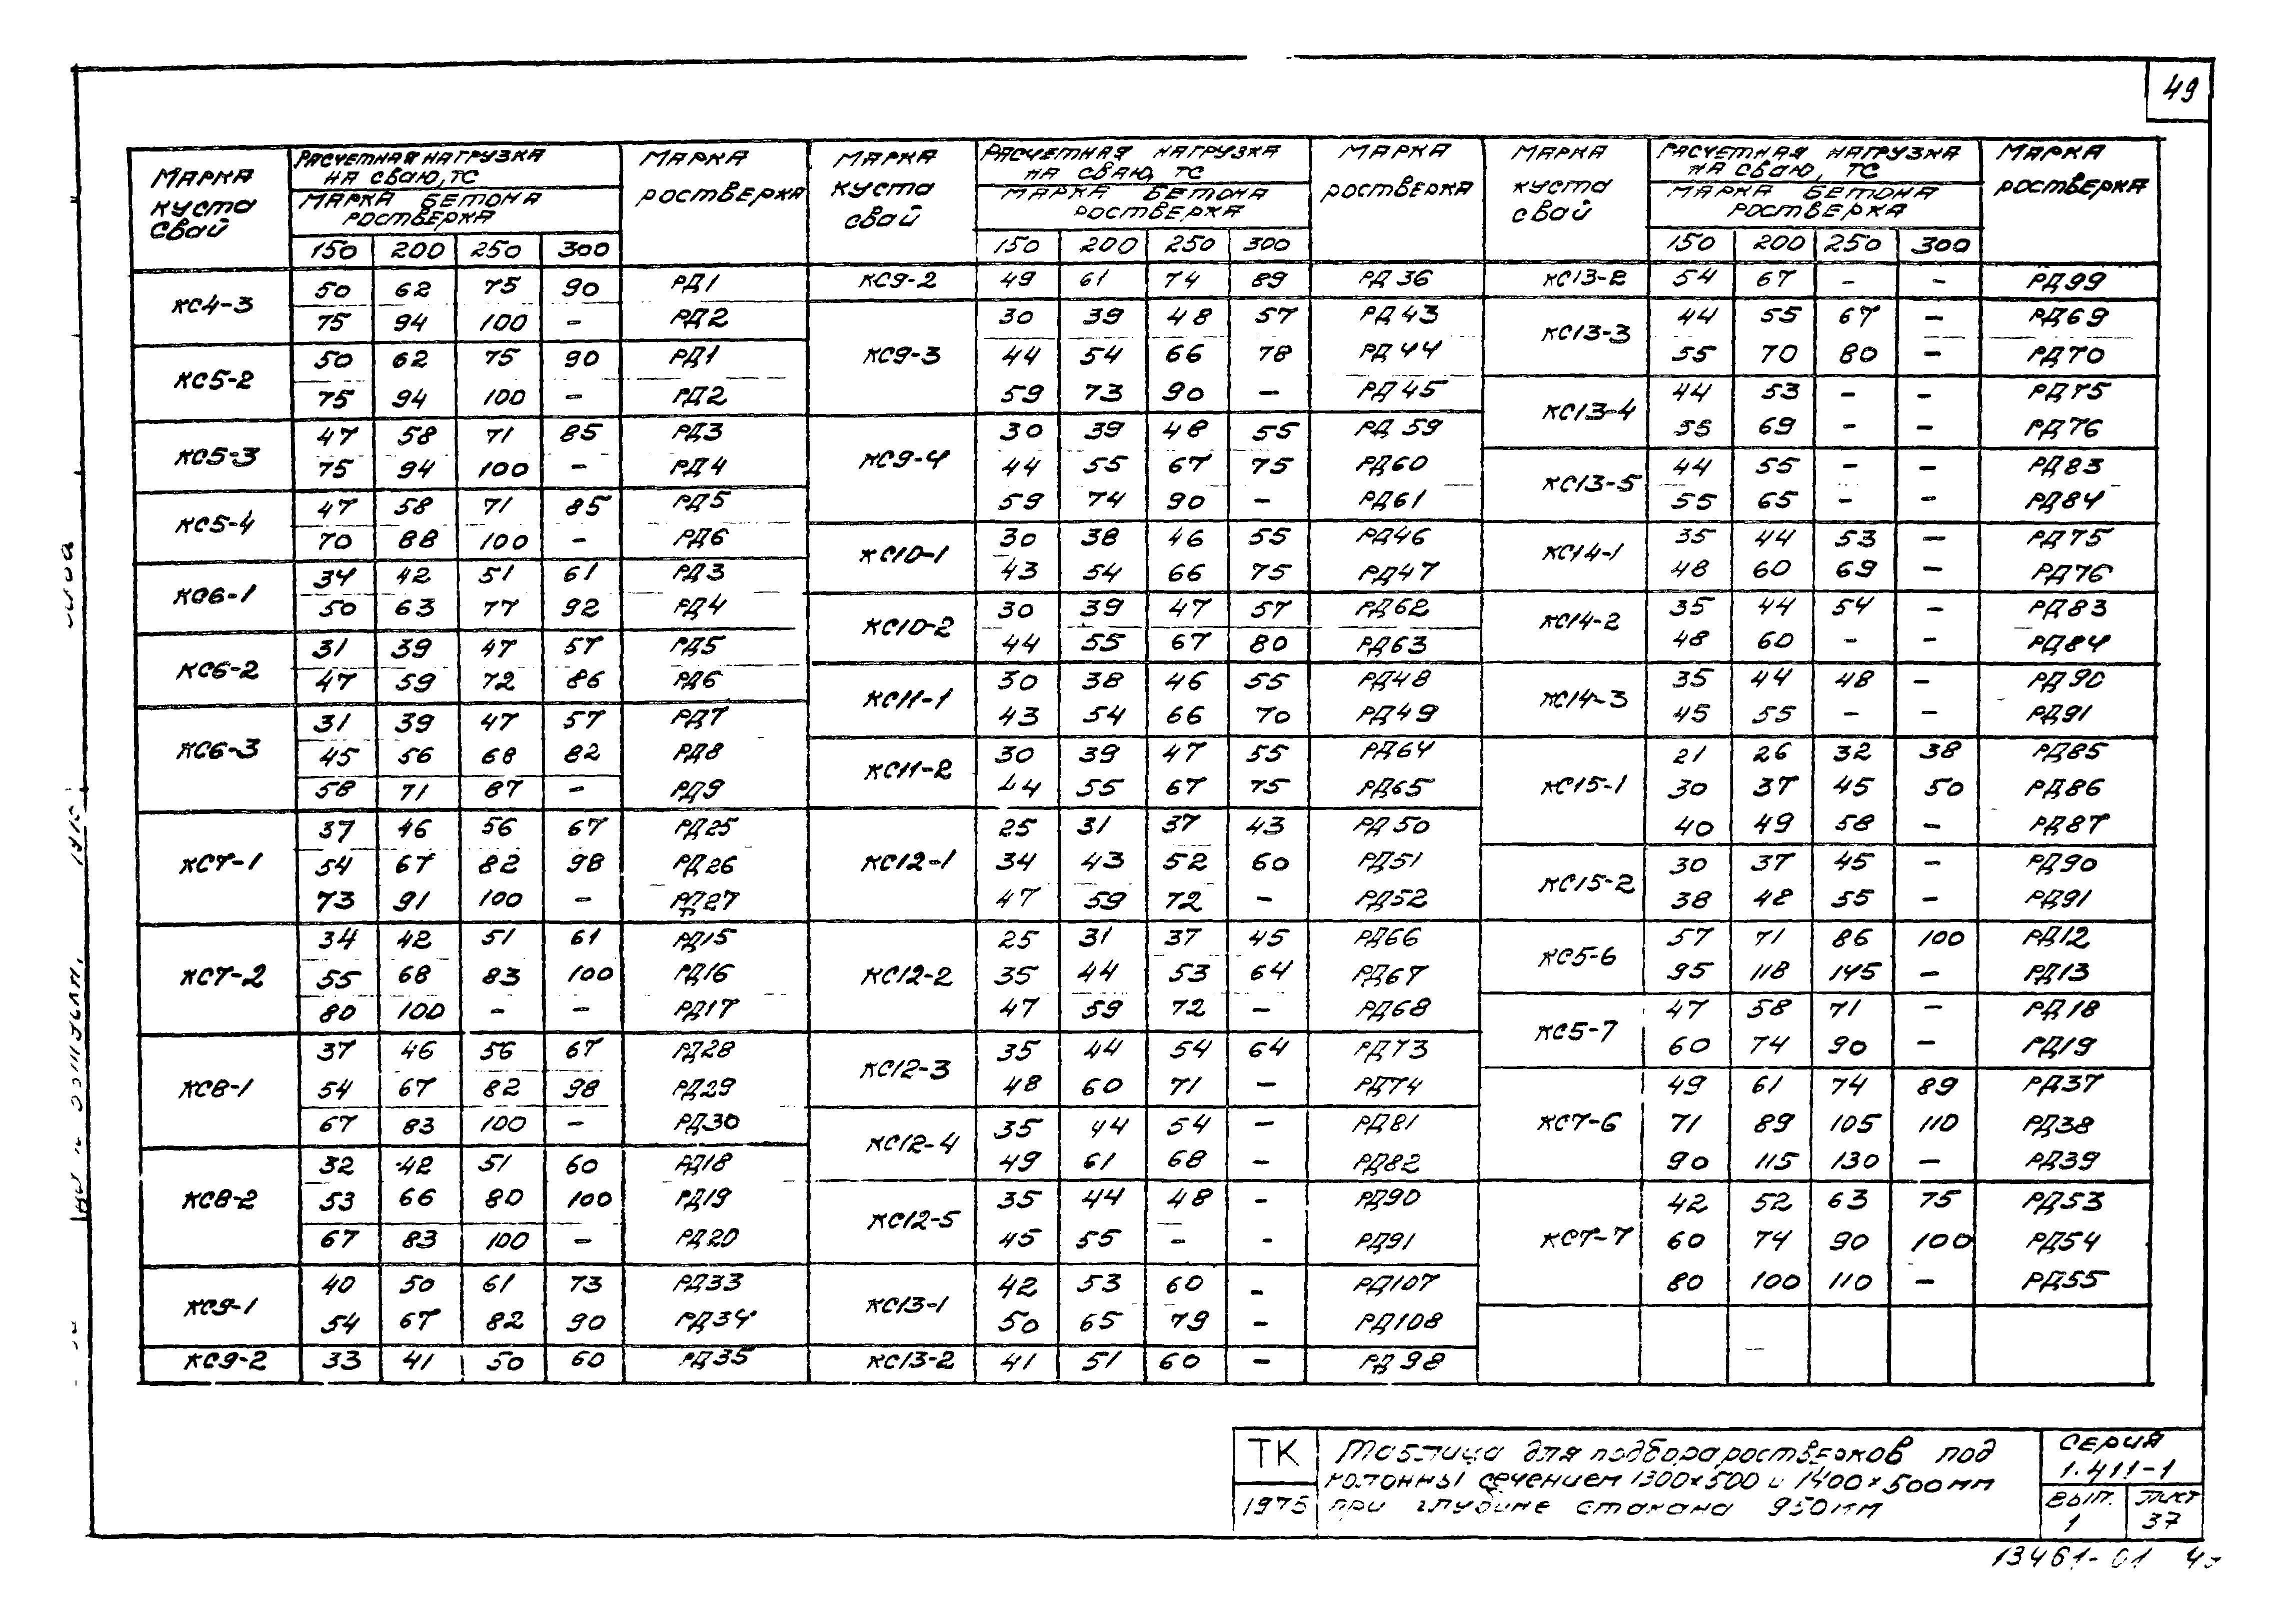 49
МАРКА КУСТА СВАЙ | РАСЧЕТНАЯ НАГРУЗКА НА СВАЮ, ТС | МАРКА РОСТВЕРКА | МАРКА КУСТА СВАЙ | РАСЧЕТНАЯ НАГРУЗКА НА СВАЮ, ТС | МАРКА РОСТВЕРКА | МАРКА КУСТА СВАЙ | РАСЧЕТНАЯ НАГРУЗКА НА СВАЮ, ТС | МАРКА РОСТВЕРКА
МАРКА БЕТОНА РОСТВЕРКА | МАРКА БЕТОНА РОСТВЕРКА | МАРКА БЕТОНА РОСТВЕРКА
150 200 250 300 | 150 200 250 300 | 150 200 250 300
КС4-3 50 62 75 90 РД1
75 94 100 – РД2
КС5-2 50 62 75 90 РД1
75 94 100 – РД2
КС5-3 47 58 71 85 РД3
75 94 100 – РД4
КС5-4 47 58 71 85 РД5
70 88 100 – РД6
КС6-1 34 42 51 61 РД3
50 63 77 92 РД4
КС6-2 31 39 47 57 РД5
47 59 72 86 РД6
КС6-3 31 39 47 57 РД7
45 56 68 82 РД8
58 71 87 – РД9
КС7-1 37 46 56 67 РД25
54 67 82 98 РД26
73 91 100 – РД27
КС7-2 34 42 51 61 РД15
55 68 83 100 РД16
80 100 – – РД17
КС8-1 37 46 56 67 РД28
54 67 82 98 РД29
67 83 100 – РД30
КС8-2 32 42 51 60 РД18
53 66 80 100 РД19
67 83 100 – РД20
КС9-1 40 50 61 73 РД33
54 67 82 90 РД34
КС9-2 33 41 50 60 РД35
КС9-2 49 61 74 89 РД36
КС9-3 30 39 48 57 РД43
44 54 66 78 РД44
59 73 90 – РД45
КС9-4 30 39 48 55 РД59
44 55 67 75 РД60
59 74 90 – РД61
КС10-1 30 38 46 55 РД46
43 54 66 75 РД47
КС10-2 30 39 47 57 РД62
44 55 67 80 РД63
КС11-1 30 38 46 55 РД48
43 54 66 70 РД49
КС11-2 30 39 47 55 РД64
44 55 67 75 РД65
КС12-1 25 31 37 43 РД50
34 43 52 60 РД51
47 59 72 – РД52
КС12-2 25 31 37 45 РД66
35 44 53 64 РД67
47 59 72 – РД68
КС12-3 35 44 54 64 РД73
48 60 71 – РД74
КС12-4 35 44 54 – РД81
49 61 68 – РД82
КС12-5 35 44 48 – РД90
45 55 – – РД91
КС13-1 42 53 60 – РД107
50 65 79 – РД108
КС13-2 41 51 60 – РД98
КС13-2 54 67 – – РД99
КС13-3 44 55 67 – РД69
55 70 80 – РД70
КС13-4 44 53 – – РД75
55 69 – – РД76
КС13-5 44 55 – – РД83
55 65 – – РД84
КС14-1 35 44 53 – РД75
48 60 69 – РД76
КС14-2 35 44 54 – РД83
48 60 – – РД84
КС14-3 35 44 48 – РД90
45 55 – – РД91
КС15-1 21 26 32 38 РД85
30 37 45 50 РД86
40 49 58 – РД87
КС15-2 30 37 45 – РД90
38 48 55 – РД91
КС5-6 57 71 86 100 РД12
95 118 145 – РД13
КС5-7 47 58 71 – РД18
60 74 90 – РД19
КС7-6 49 61 74 89 РД37
71 89 105 110 РД38
90 115 130 – РД39
КС7-7 42 52 63 75 РД53
60 74 90 100 РД54
80 100 110 – РД55
ТК
1975
Таблица для подбора ростверков под
колонны сечением 1300×500 и 1400×500мм
при глубине стакана 950мм
СЕРИЯ
1.411-1
ВЫП. ЛИСТ
1 37
13461-01